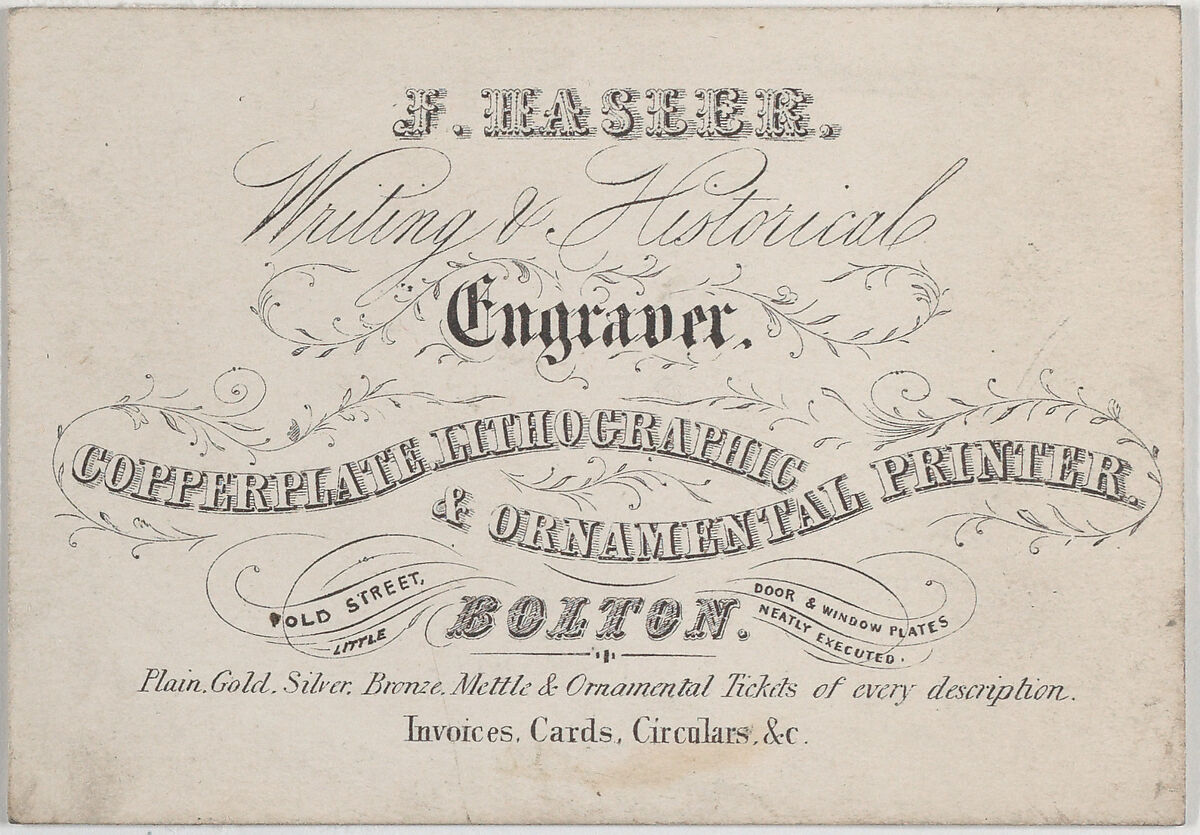 F. HASLER.
Writing & Historical
Engraver.
COPPERPLATE, LITHOGRAPHIC
& ORNAMENTAL PRINTER.
OLD STREET,
LITTLE
BOLTON.
DOOR & WINDOW PLATES
NEATLY EXECUTED.
Plain, Gold, Silver, Bronze, Mettle & Ornamental Tickets of every description.
Invoices, Cards, Circulars, &c.